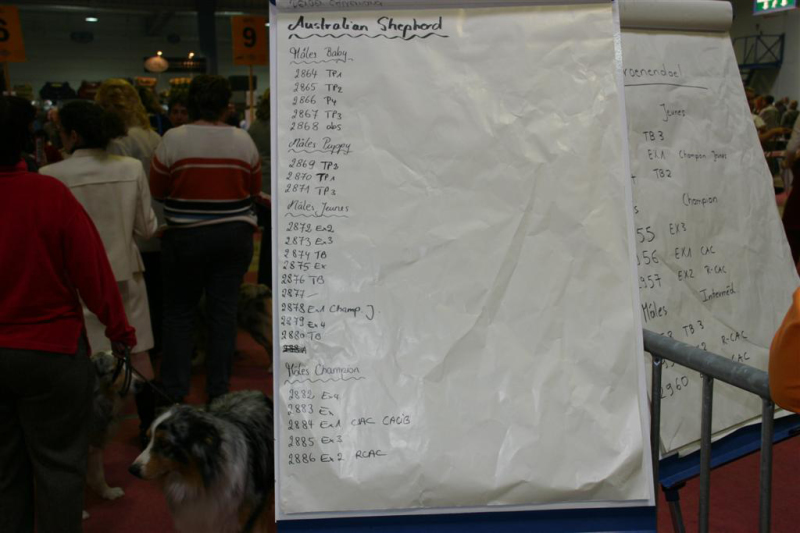 Australian Shepherd
Mâles Baby
2864 TP1
2865 TP2
2866 P4
2867 TP3
2868 abs
Mâles Puppy
2869 TP3
2870 TP1
2871 TP2
Mâles Jeunes
2872 Ex2
2873 Ex3
2874 TB
2875 Ex
2876 TB
2877 -
2878 Ex1 Champ. J
2879 Ex4
2880 TB
Mâles Champion
2882 Ex4
2883 Ex
2884 Ex1 CAC CACIB
2885 Ex3
2886 Ex2 RCAC
roenendael
Jeunes
TB3
EX1 Champion Jeunes
TB2
Champion
55 EX3
956 EX1 CAC
2957 EX2 R-CAC
Mâles Interméd
TB3
R-CAC
CAC
2960
9